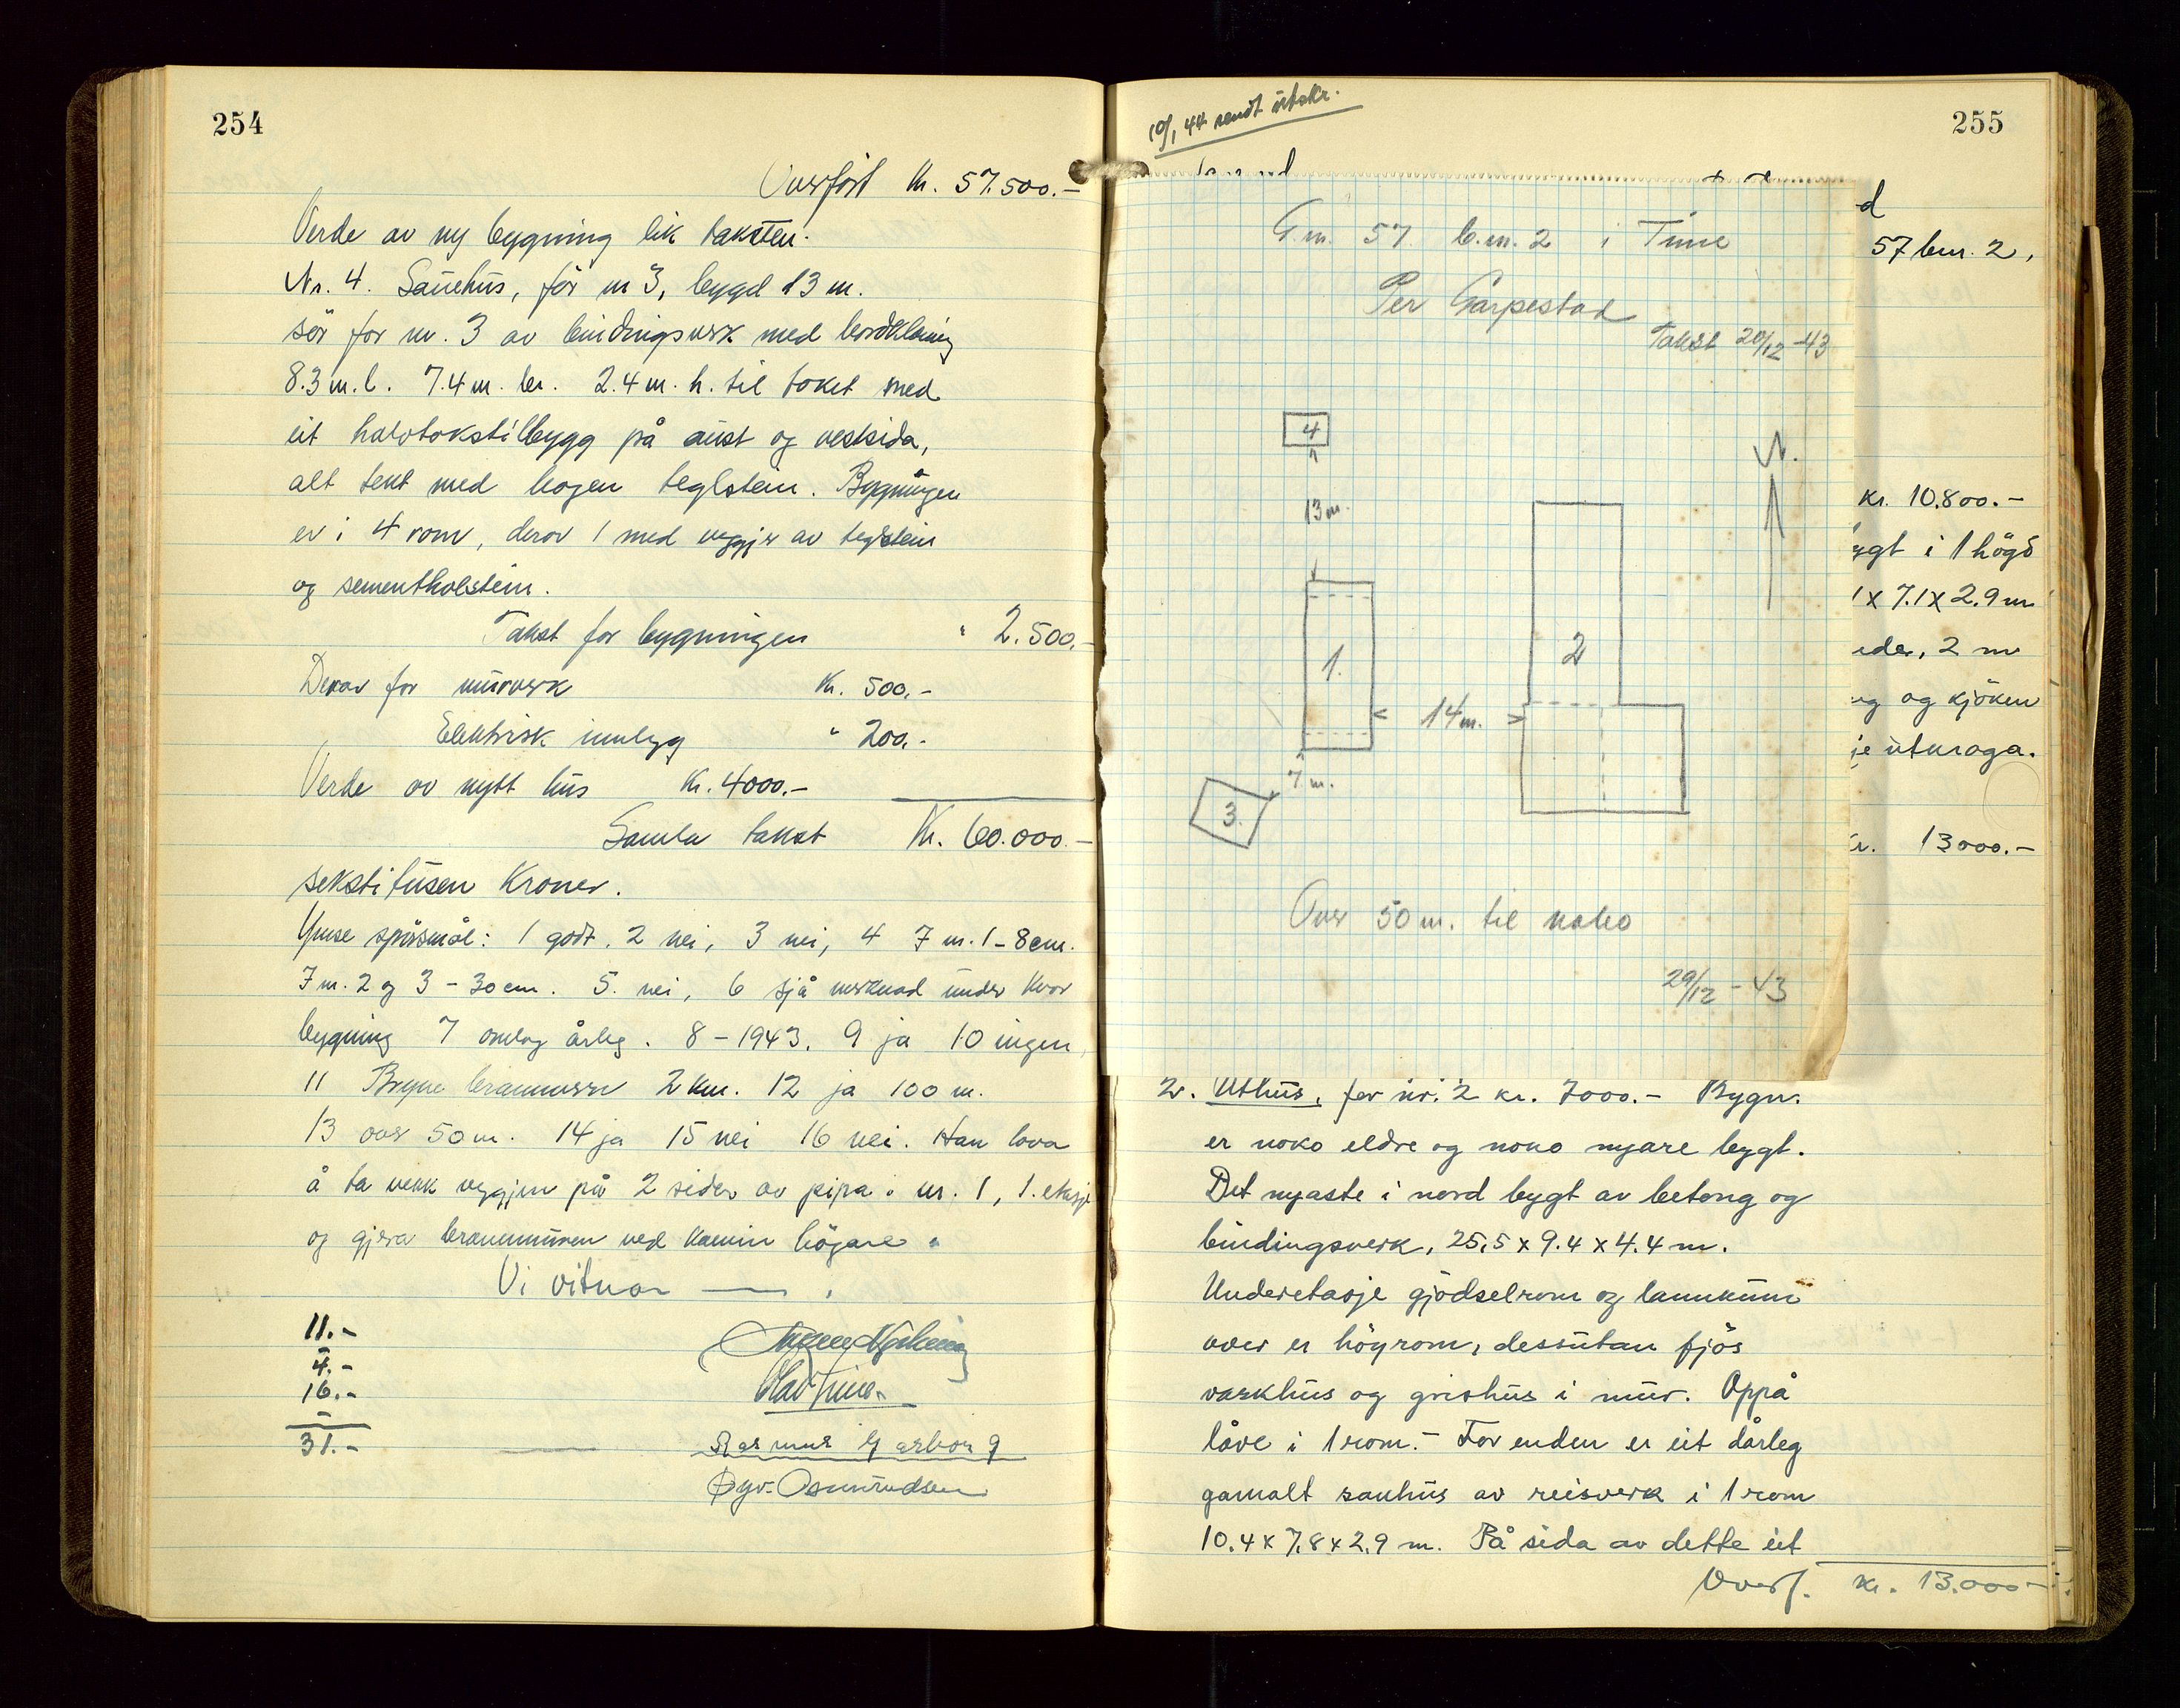 254
Overført Kr. 57.500.-
Verde av ny bygning lik taksten.
Nr. 4. Sauehus, før nr 3, bygd 13 m.
sør for nr. 3 av bindingsverk med bordkledning
8.3 m. l. 7.4 m. br. 2.4 m. h. til taket med
eit halvtakstilbygg på aust og vestsida,
alt tekt med hogen teglstein. Bygningen
er i 4 rom, derav 1 med veggjer av teglstein
og sementholstein.
Takst for bygningen " 2.500.-
Derav for murverk Kr. 500.-
Elektrisk innlegg " 200.-
Verde av nytt hus Kr. 4000.-
Samla takst Kr. 60.000.-
sekstitusen Kroner.
Ymse spørsmål: 1 godt. 2 nei, 3 nei, 4 7 m. 1 - 8 cm.
7 m. 2 og 3 - 30 cm. 5. nei, 6 sjå merknad under kvar
bygning 7 omlag årleg. 8 - 1943. 9 ja 10 ingen,
11 Bryne brannvern 2 km. 12 ja 100 m.
13 over 50 m. 14 ja 15 nei 16 nei. Han lova
å ta vekk veggjen på 2 sider av pipa i nr. 1, 1. etasje
og gjera brannmuren ved kamin högare.
Vi vitnar — .
11.-
4.-
16.-
31.-
Olav Time.
Rasmus Garborg
Øyv. Osmundsen
255
10/1 44 sendt utskr.
d
57 bnr. 2,
G.nr. 57 b.nr. 2 i Time
Per Garpestad
Takst 29/12 -43
4
N.
13 m.
1.
2
14 m.
7 m.
3.
Over 50 m. til nabo
29/12 - 43
kr. 10.800.-
ygt i 1 högd
1 x 7.1 x 2.9 m
eder, 2 m
ng og kjöken
je utkraga.
kr. 13000.-
2. Uthus, før nr. 2 kr. 7000.- Bygn.
er noko eldre og noko nyare bygt.
Det nyaste i nord bygt av betong og
bindingsverk, 25,5 x 9.4 x 4.4 m.
Underetasje gjödselrom og lannkum
over er höyrom, dessutan fjös
vaskhus og grishus i mur. Oppå
låve i 1 rom.- For enden er eit dårleg
gamalt sauhus av reisverk i 1 rom
10.4 x 7.8 x 2.9 m. På sida av dette eit
Overf. kr. 13.000.-